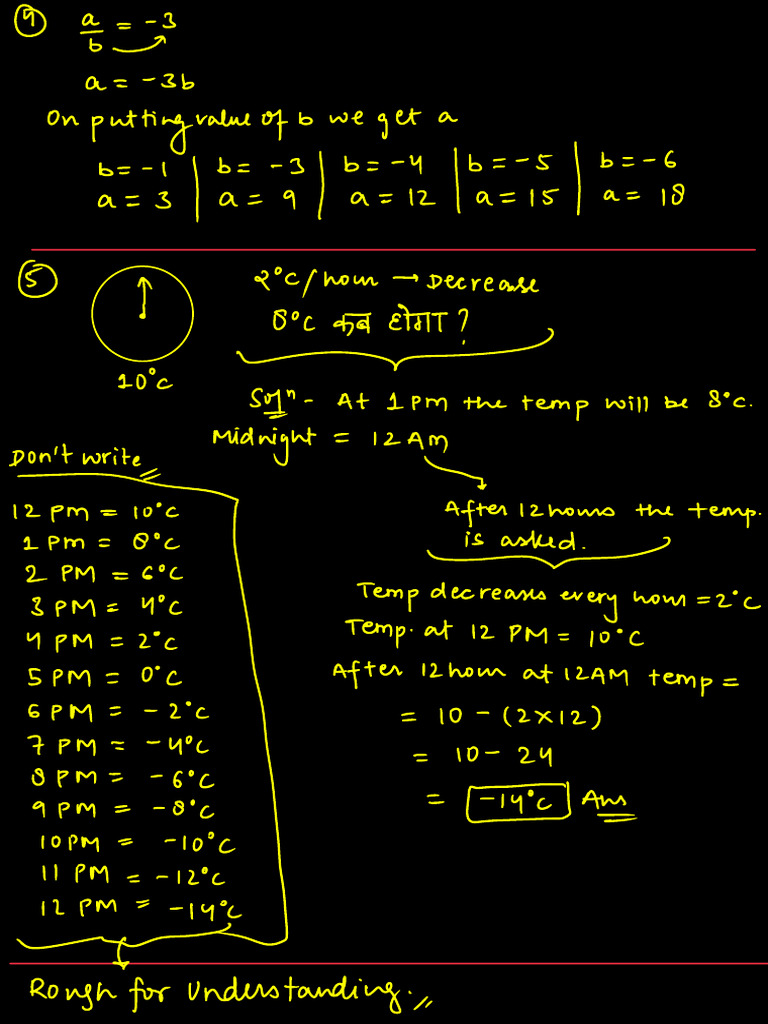 ④ a/b = -3
a = -3b
On putting value of b we get a
b = -1 | b = -3 | b = -4 | b = -5 | b = -6
a = 3 | a = 9 | a = 12 | a = 15 | a = 18
⑤ 2°C/hour → Decrease
8°C कब होगा ?
10°C
Solⁿ - At 1 pm the temp will be 8°C.
Midnight = 12 Am
Don't write
12 pm = 10°C
1 Pm = 8°C
2 PM = 6°C
3 PM = 4°C
4 PM = 2°C
5 PM = 0°C
6 PM = -2°C
7 PM = -4°C
8 PM = -6°C
9 PM = -8°C
10 PM = -10°C
11 PM = -12°C
12 PM = -14°C
After 12 hours the temp.
is asked.
Temp decreases every hour = 2°C
Temp. at 12 PM = 10°C
After 12 hour at 12AM temp =
= 10 - (2×12)
= 10 - 24
= -14°C Ans
Rough for understanding.